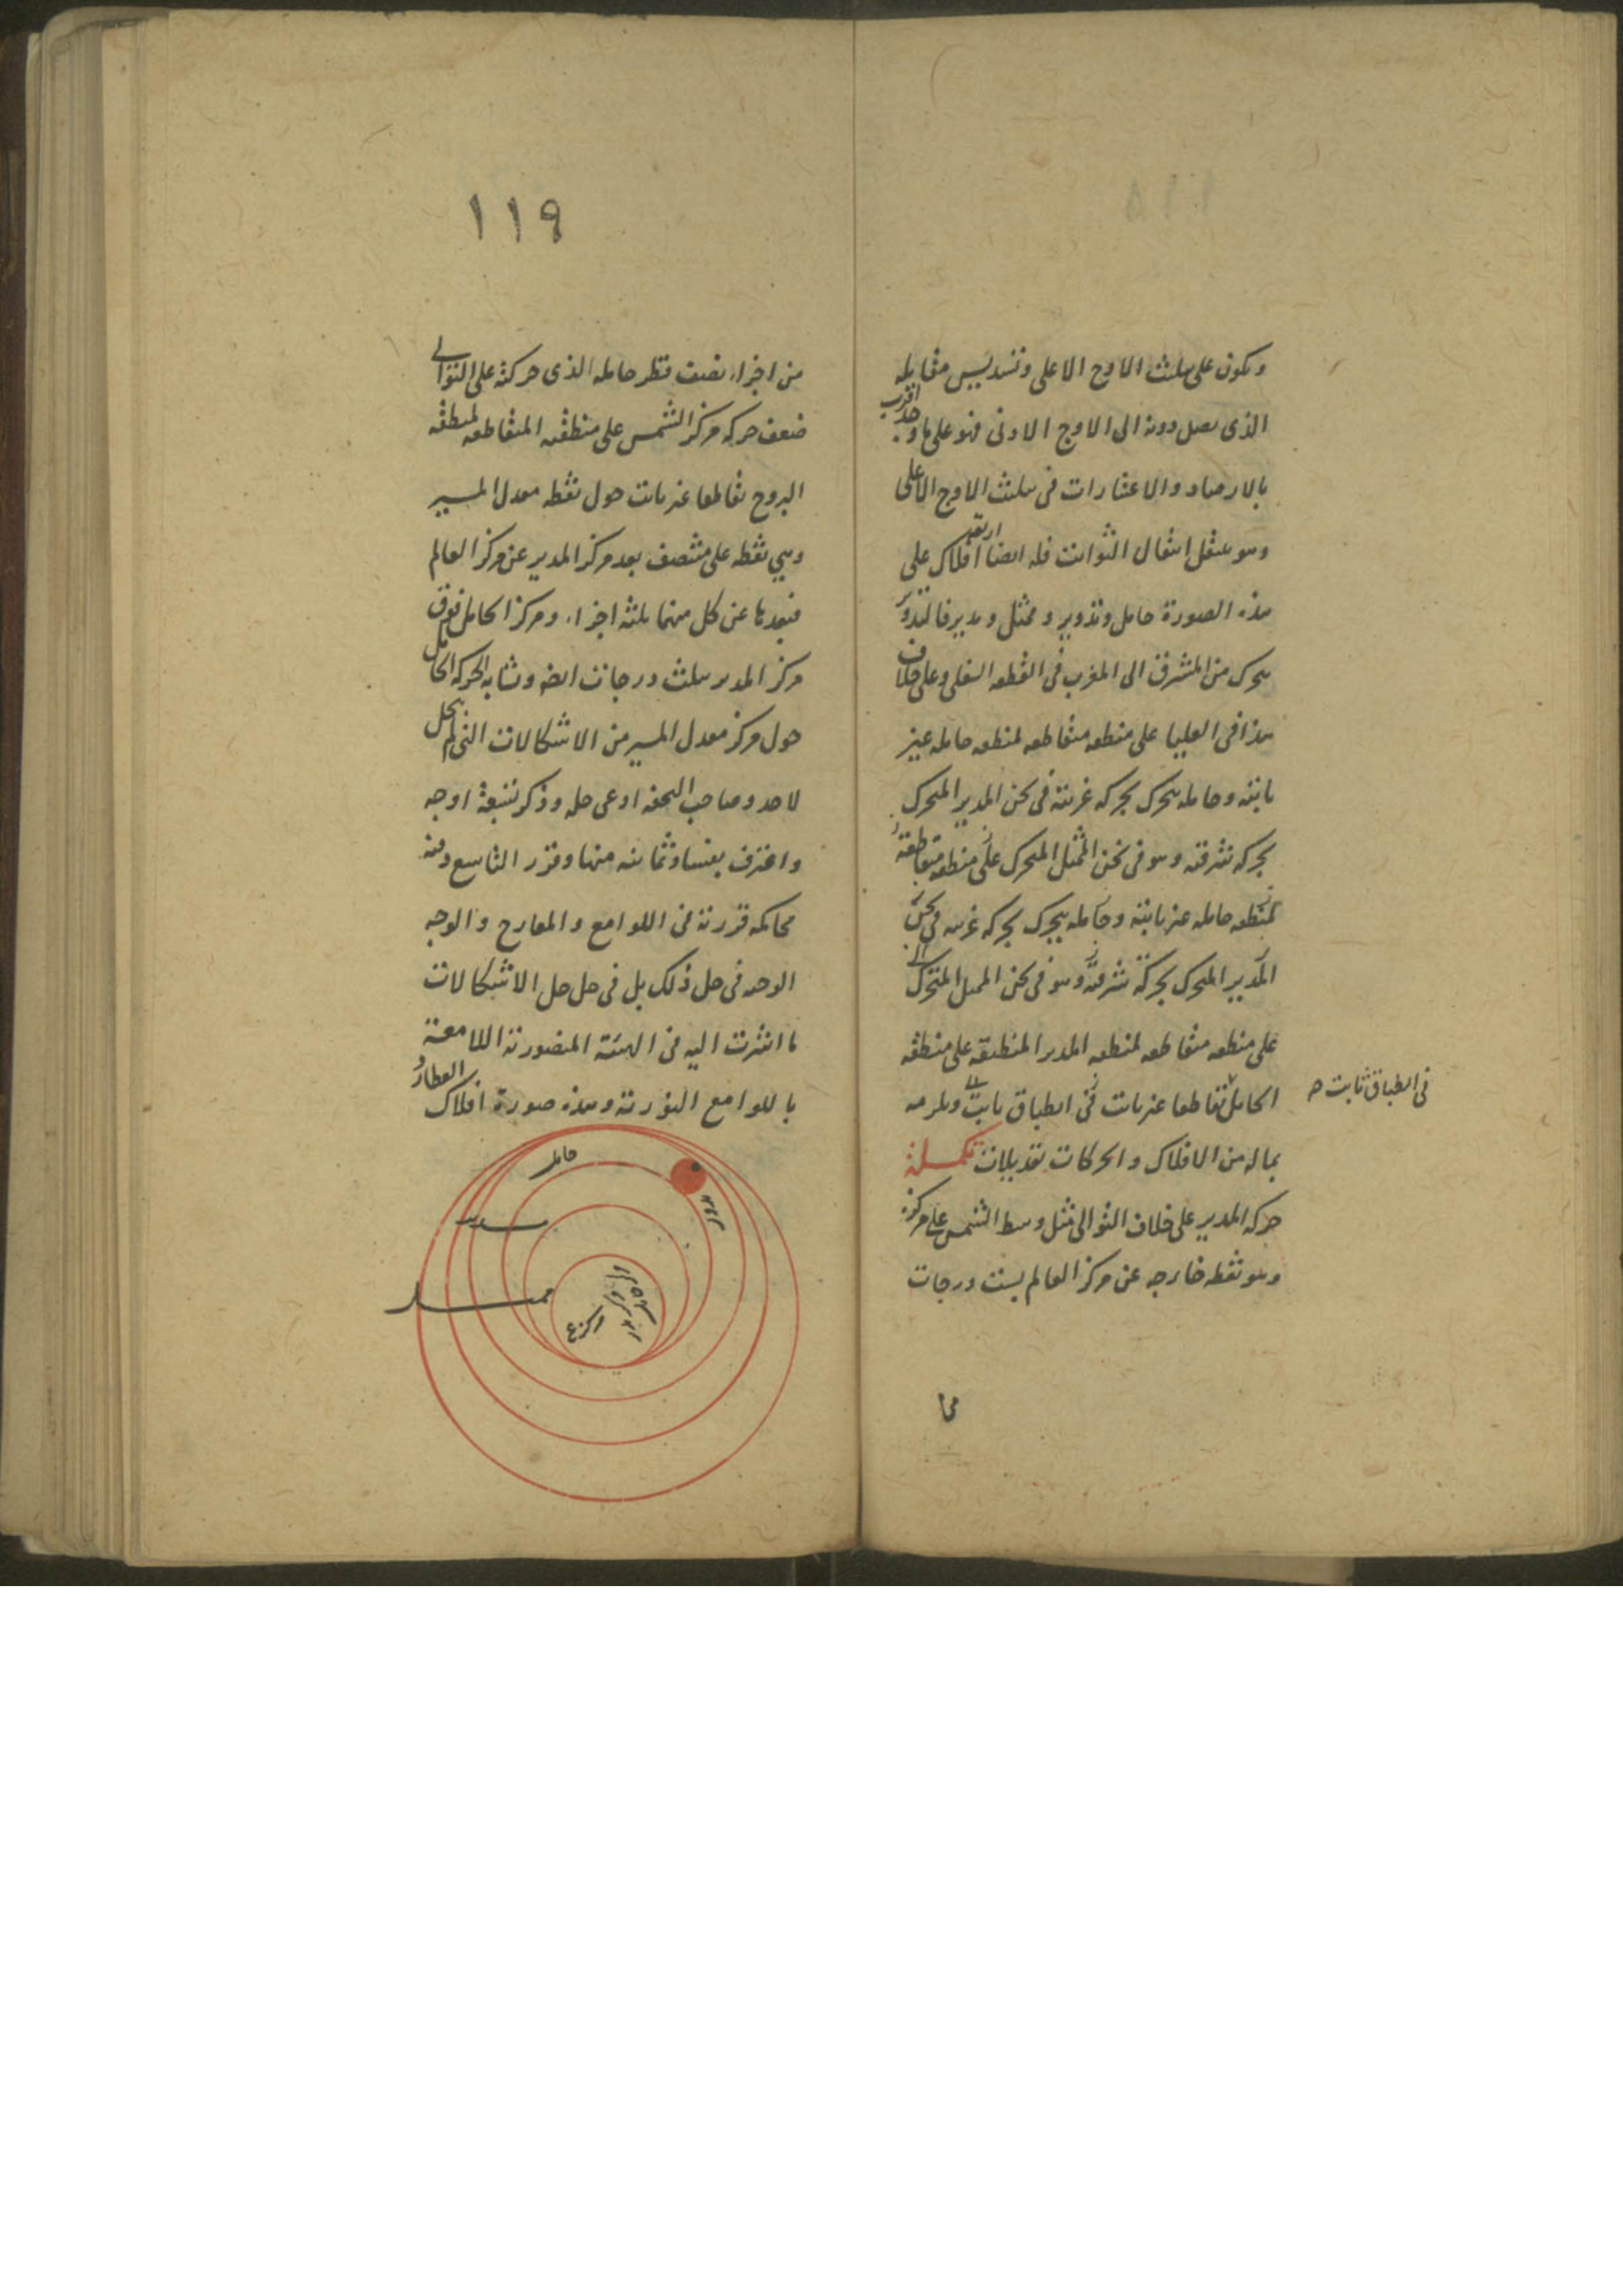 ويكون على تثليث الاوج الاعلى وتسديس مقابله
الذى يصل دونه الى الاوج الادنى فهو على ما وجد اقرب
بالارصاد والاعتبارات فى تثليث الاوج الاعلى
وهو ينتقل انتقال الثوابت فله ايضا اربعة افلاك على
هذه الصورة حامل وتدوير وممثل ومدير فالتدوير
يتحرك من المشرق الى المغرب فى القطعه السفلى وعلى خلاف
هذا فى العليا على منطقه متقاطعه لمنطقه حامله غير
ثابتة وحامله يتحرك بحركه غربية فى ثخن المدير المتحرك
بحركه شرقيه وهو فى ثخن الممثل المتحرك على منطقه متقاطعة
لمنطقه حامله غير ثابتة وحامله يتحرك بحركه غربيه فى ثخن
المدير المتحرك بحركة شرقية وهو فى ثخن الممثل المتحرك
على منطقه متقاطعه لمنطقه المدير المنطبقة على منطقه
الحامل تقاطعا غير ثابت فى انطباق ثابت ويلزمه
فى انطباق ثابت صح
بماله من الافلاك والحركات تعديلات تكملة
حركه المدير على خلاف التوالى مثل وسط الشمس على مركزه
وهو نقطه خارجه عن مركز العالم بست درجات
١١٩
من اجزاء نصف قطر حامله الذى حركته على التوالى
ضعف حركه مركز الشمس على منطقه المتقاطعه لمنطقه
البروج تقاطعا غير ثابت حول نقطه معدل المسير
وهي نقطه على منتصف بعد مركز المدير عن مركز العالم
فبعدها عن كل منهما ثلثه اجزاء ومركز الحامل فوق
مركز المدير بثلث درجات ايضا وتشابه الحركه الحامل
حول مركز معدل المسير من الاشكالات التى لم ينحل
لاحد وصاحب التحفه ادعى حله وذكر تسعة اوجه
واعترف بفساد ثمانيه منها وقرر التاسع وفيه
محاكمه قررته فى اللوامع والمعارج والوجه
الوجيه فى حل ذلك بل فى حل جل الاشكالات
ما اشرت اليه فى الهيئة المنصورية اللامعة
باللوامع النورية وهذه صورة افلاك العطارد
حامل
مدير
ممثل
مركز ع